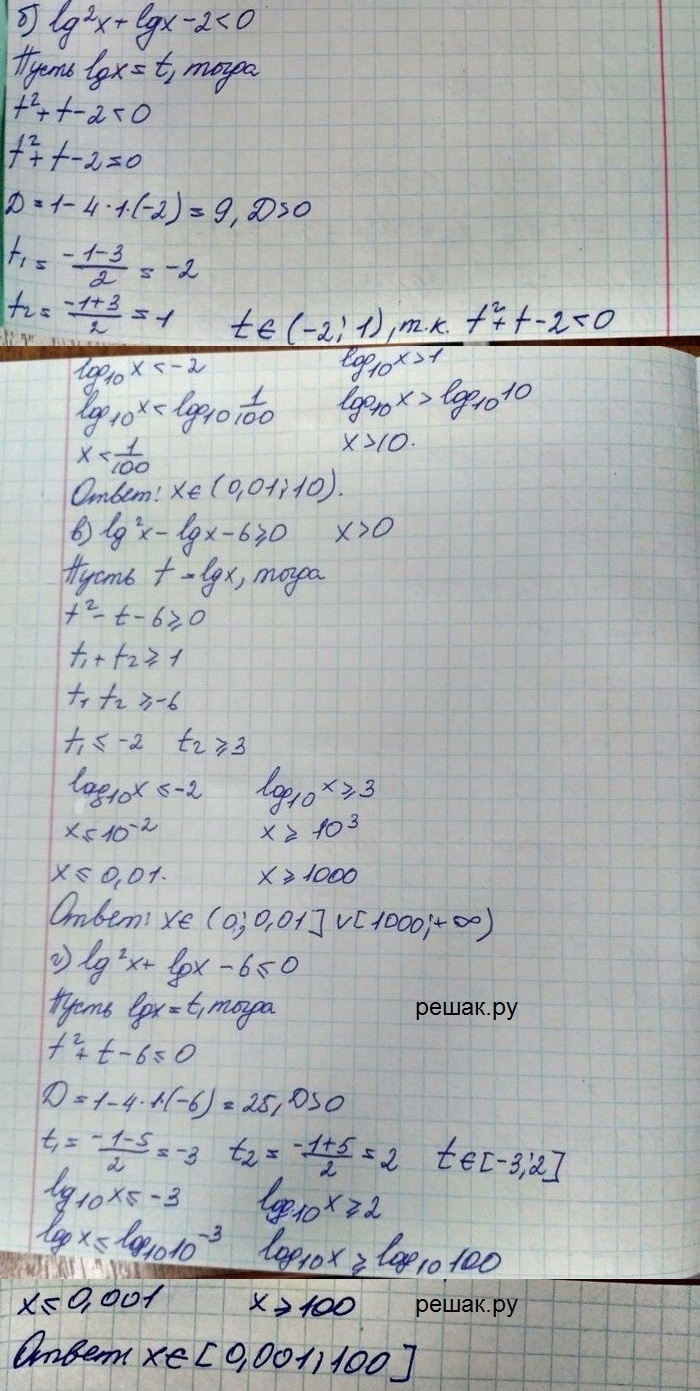 б) lg²x + lgx - 2 < 0
Пусть lgx = t, тогда
t² + t - 2 < 0
t² + t - 2 = 0
D = 1 - 4·1·(-2) = 9, D>0
t₁ = (-1-3)/2 = -2
t₂ = (-1+3)/2 = 1 t ∈ (-2; 1), т.к. t² + t - 2 < 0
log₁₀x < -2 log₁₀x > 1
log₁₀x < log₁₀ 1/100 log₁₀x > log₁₀10
x < 1/100 x > 10.
Ответ: x ∈ (0,01; 10).
в) lg²x - lgx - 6 ⩾ 0 x > 0
Пусть t = lgx, тогда
t² - t - 6 ⩾ 0
t₁ + t₂ ⩾ 1
t₁ t₂ ⩾ -6
t₁ ⩽ -2 t₂ ⩾ 3
log₁₀x ⩽ -2 log₁₀x ⩾ 3
x ⩽ 10⁻² x ⩾ 10³
x ⩽ 0,01. x ⩾ 1000
Ответ: x ∈ (0; 0,01] ∨ [1000; +∞)
г) lg²x + lgx - 6 ⩽ 0
Пусть lgx = t, тогда
решак.ру
t² + t - 6 ⩽ 0
D = 1 - 4·1·(-6) = 25, D>0
t₁ = (-1-5)/2 = -3 t₂ = (-1+5)/2 = 2 t ∈ [-3; 2]
lg₁₀x ⩽ -3 log₁₀x ⩾ 2
log x ⩽ log₁₀10⁻³ log₁₀x ⩾ log₁₀100
x ⩽ 0,001 x ⩾ 100
решак.ру
Ответ: x ∈ [0,001; 100]